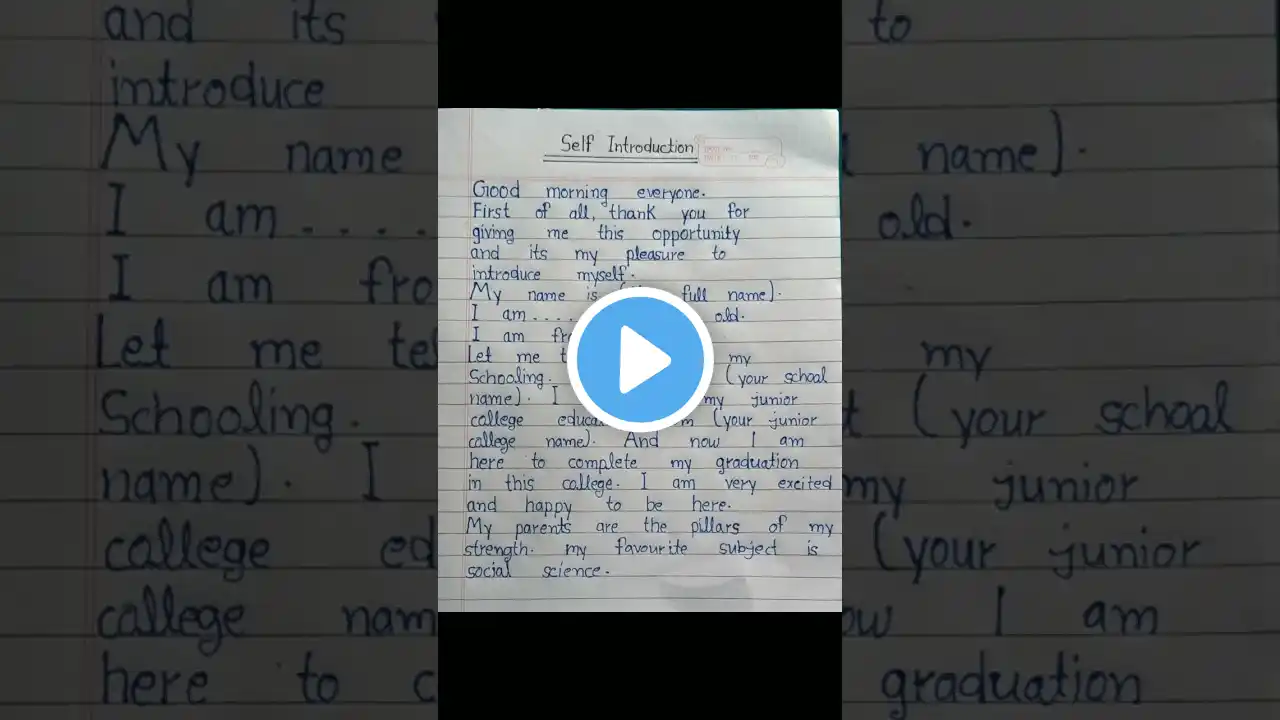 Self Introduction
Good morning everyone.
First of all, thank you for
giving me this opportunity
and its my pleasure to
introduce myself.
My name is full name).
I am.... old.
I am
Let me my
Schooling. (your school
name). I my junior
college (your junior
college name). And now I am
here to complete my graduation
in this college. I am very excited
and happy to be here.
My parents are the pillars of my
strength. my favourite subject is
social science.